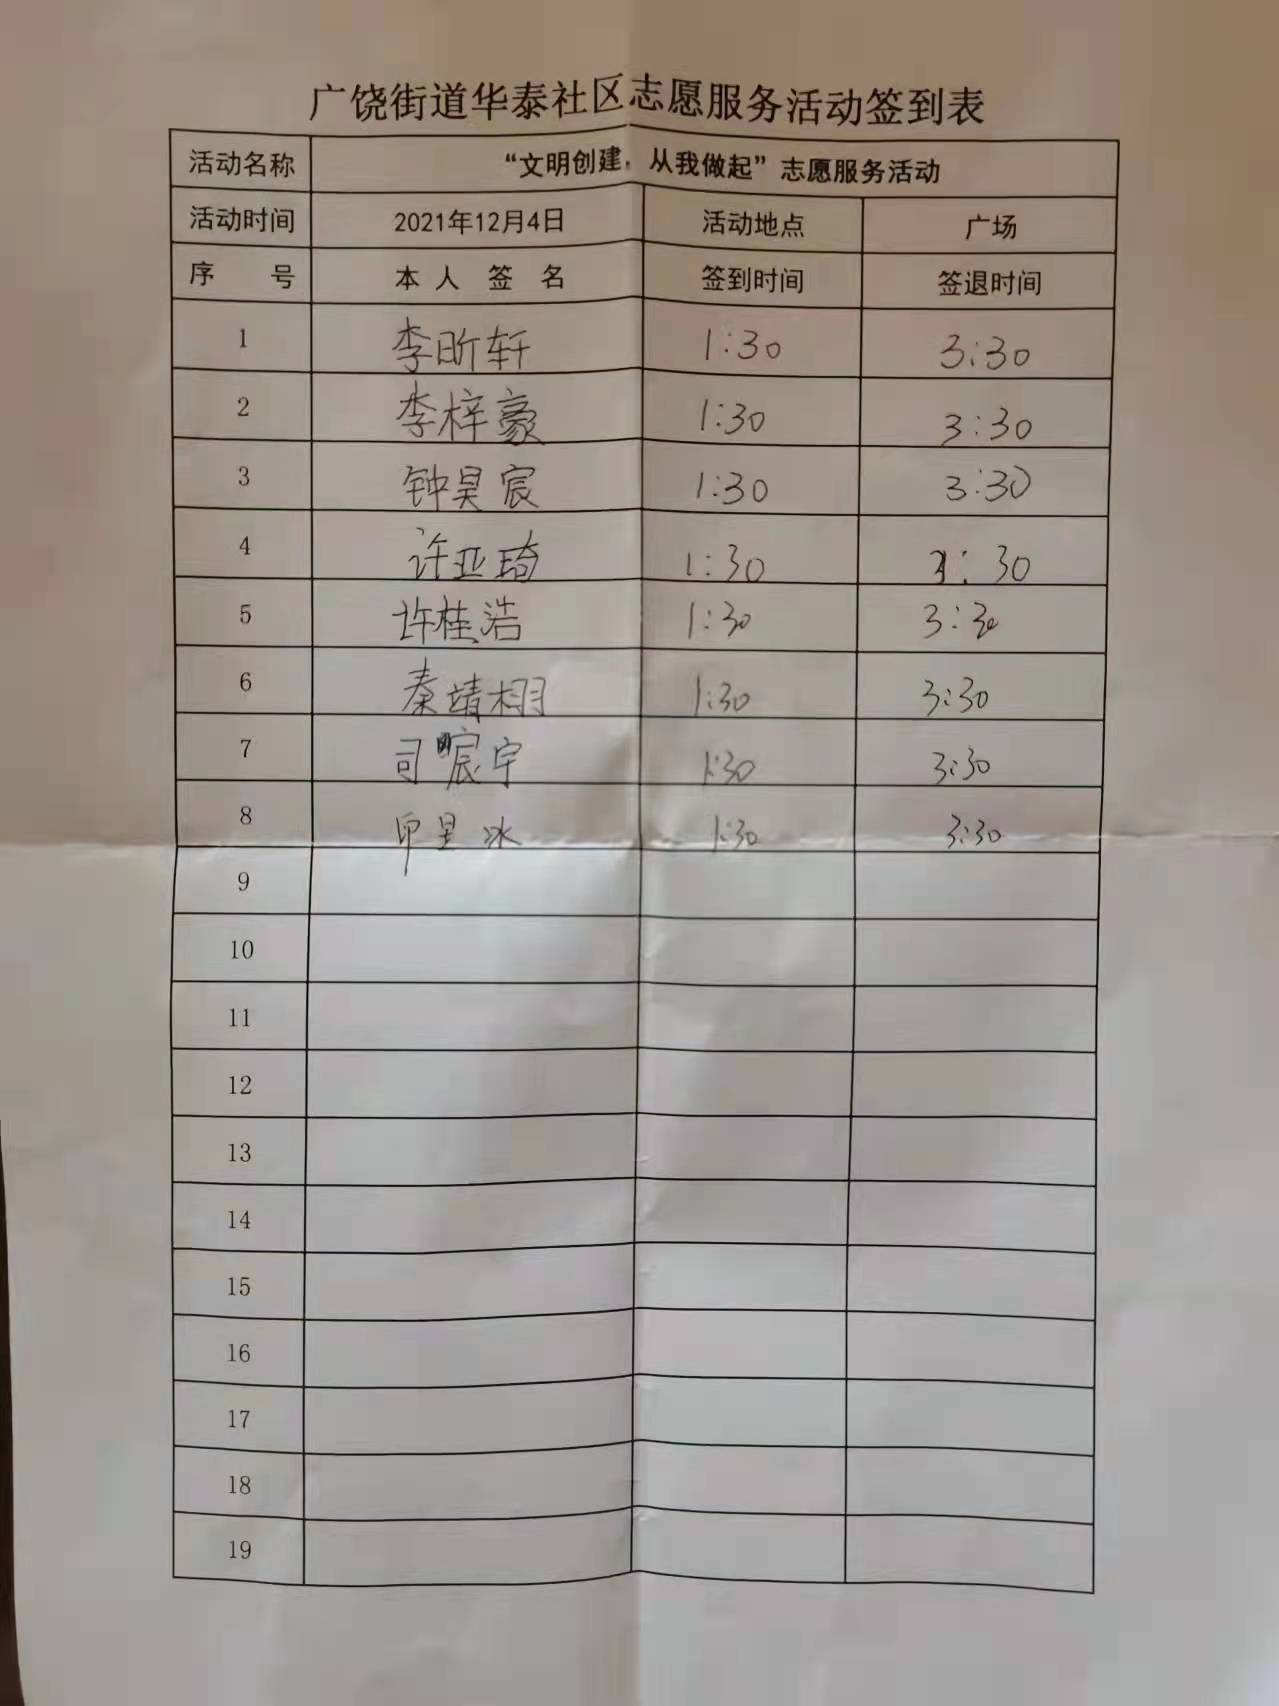 广饶街道华泰社区志愿服务活动签到表
活动名称 “文明创建，从我做起”志愿服务活动
活动时间 2021年12月4日 活动地点 广场
序 号 本 人 签 名 签到时间 签退时间
1 李昕轩 1:30 3:30
2 李梓豪 1:30 3:30
3 钟昊宸 1:30 3:30
4 许亚琦 1:30 3:30
5 许桂浩 1:30 3:30
6 秦靖栩 1:30 3:30
7 司宸宇 1:30 3:30
8 1:30 3:30
9
10
11
12
13
14
15
16
17
18
19